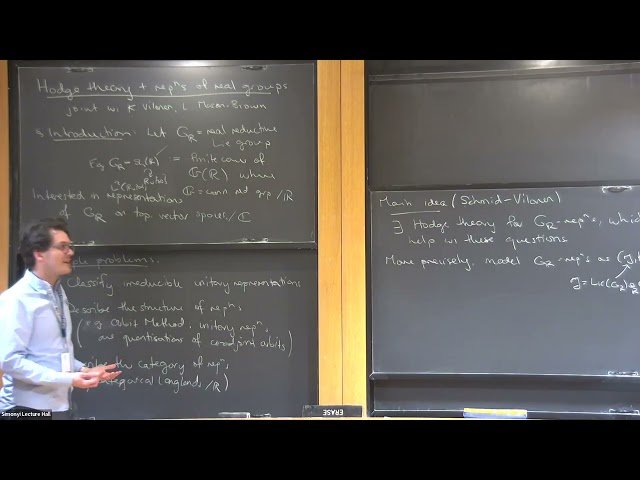 Hodge theory + repⁿs of real groups
joint w. K Vilonen, L Mason-Brown
§ Introduction: Let G_ℝ = real reductive
Lie group
E.g. G_ℝ = SL₂(ℝ) = finite cover of
G(ℝ) where
G = conn red grp /ℝ
Interested in representations
of G_ℝ on top. vector spaces /ℂ
ple problems:
Classify irreducible unitary representations
scribe the structure of repⁿs
(e.g. Orbit Method: unitary repⁿs
are quantisations of coadjoint orbits)
scribe the category of repⁿs
categorical Langlands /ℝ)
Main idea (Schmid-Vilonen)
∃ Hodge theory for G_ℝ-repⁿs, which
help w. these questions
More precisely, model G_ℝ-repⁿs as (𝔤,
𝔤 = Lie(G_ℝ)
ERASE
Simonyi Lecture Hall